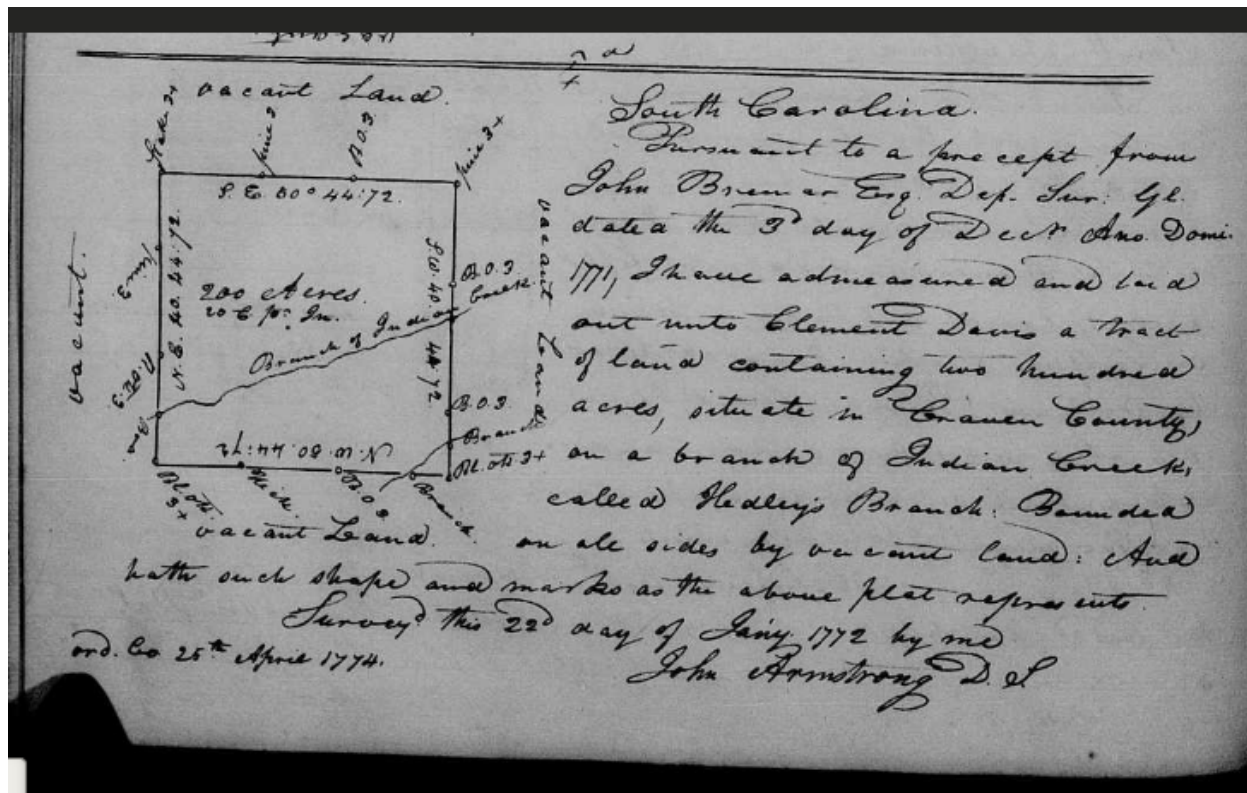 vacant Land.
Stake 3x
pine 3
B.O.3
pine 3+
S.E. 80° 44:72.
vacant.
pine 3
N.E. 40. 44:72
200 Acres
20 C pr. In.
Branch of Indian Creek
S.W. 40. 44:72
B.O.3
vacant Land
B.O.3
Branch
Bl. Oak 3+
N.W. 80. 44:72
Hick.
B.O. 3
Branch
Bl. Oak 3+
vacant Land.
South Carolina.
Pursuant to a precept from
John Bremar Esq. Dep. Sur: Gl.
dated the 3d day of Decr. Ano. Domi.
1771, I have admeasured and laid
out unto Clement Davis a tract
of land containing two hundred
acres, situate in Craven County,
on a branch of Indian Creek,
called Hedley's Branch: Bounded
on all sides by vacant land: And
hath such shape and marks as the above plat represents.
Surveyd this 22d day of Jany. 1772 by me
ord. Co. 25th April 1774.
John Armstrong D. S